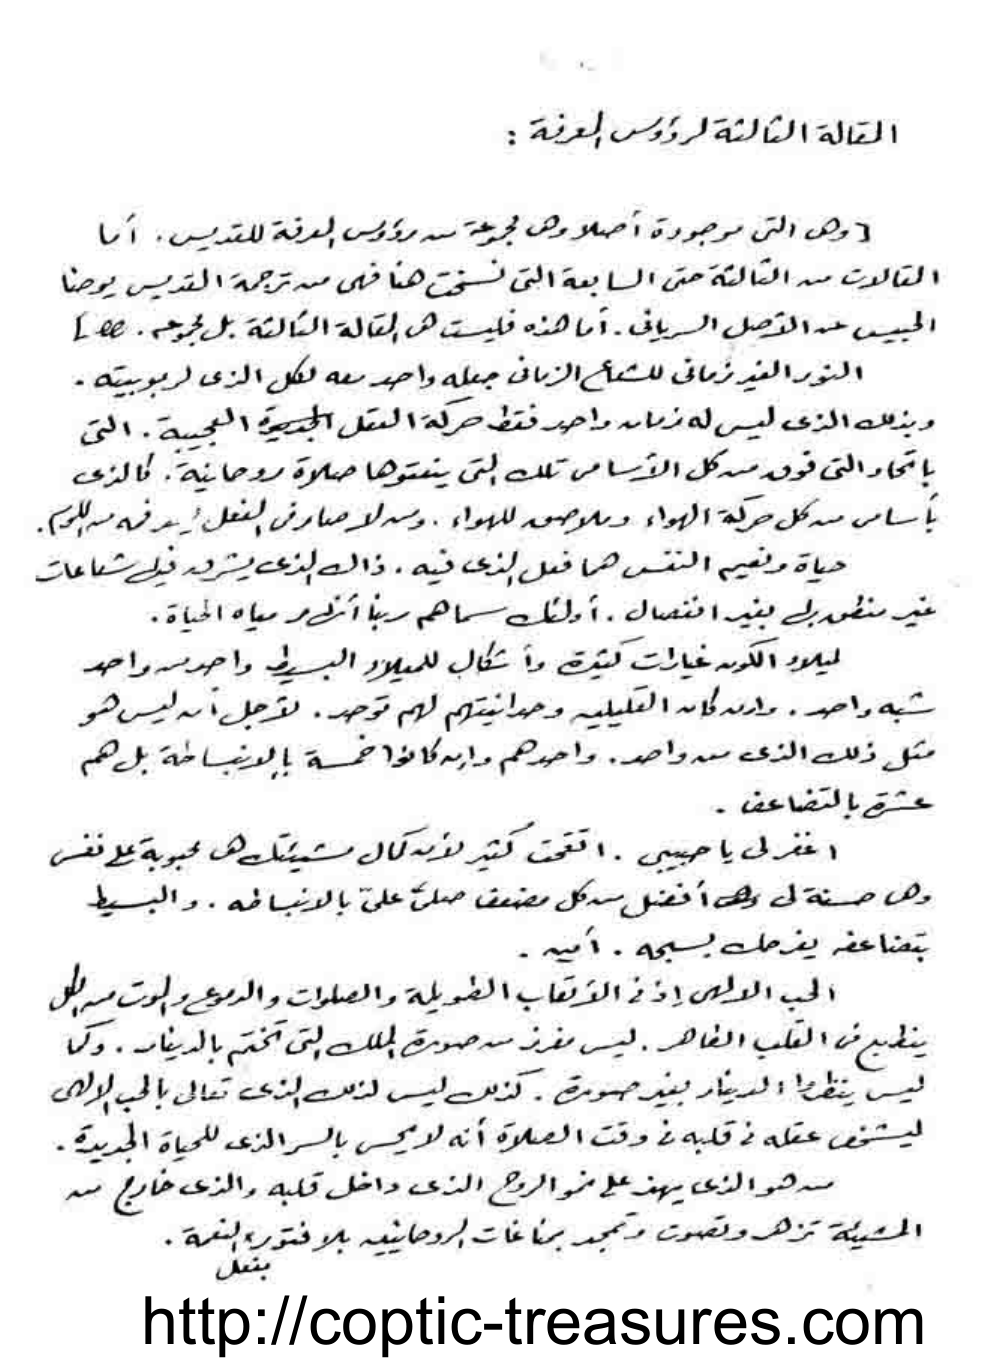 المقالة الثالثة لرؤوس المعرفة :
[ وهى التى موجودة أصلا وهى مجموعة من رؤوس المعرفة للقديس . أما
المقالات من الثالثة حتى السابعة التى نسخت هنا فهى من ترجمة القديس يوحنا
الحبيس عن الأصل السريانى . أما هذه فليست هى المقالة الثالثة بل مجموعه .
النور الغير زمانى للشعاع الزمانى جعله واحد معه لكل الذى لربوبيته .
وبذلك الذى ليس له زمان واحد فقط حركة العقل العجيبة . التى
باتحاد التى فوق من كل الأساس تلك التى ينعتوها صلاة روحانية . كالذى
بأساس من كل حركة الهواء وملاصق للهواء . ومن لا صار فى الفعل يعرفه من اللوم .
حياة ونعيم النفس هما فعل الذى فيه . ذاك الذى يشرق فيك شعاعات
غير منطق بك بغير انفصال . أولئك سماهم ربنا أنهار مياه الحياة .
لميلاد الكون غيارات كثيرة وأشكال للميلاد البسيط واحد من واحد
شبه واحد . وإن كان القليلين وحدانيتهم لهم توحد . لأجل أن ليس هو
مثل ذلك الذى من واحد . واحدهم وإن كانوا خمسة بالانبساطة بل هم
عشرة بالتضاعف .
اغفر لى يا حبيبى . اتقحت كثير لأن كمال مشيئتك هى محبوبة على نفسى
وهى حسنة لى أفضل من كل مضعف صلى علىّ بالانبساطه . والبسيط
بتضاعفه يفرحك بسبحه . أمين .
الحب الالهى إذ فى الأتعاب الطويلة والصلوات والدموع والموت من الكل
ينطبع فى القلب الطاهر . ليس مفرز من صورة الملك التى تختم بالدينار . وكما
ليس ينظروا الدينار بغير صورة . كذلك ليس لذلك الذى تعالى بالحب الإلهى
ليشخص عقله فى قلبه فى وقت الصلاة أنه لا يحس بالسر الذى للحياة الجديدة .
من هو الذى يهذ على نمو الروح الذى داخل قلبه والذى خارج من
المشيئة تزهر وتصوت وتمجد بمناغات الروحانيين بلا فتور بفعل النعمة .
http://coptic-treasures.com